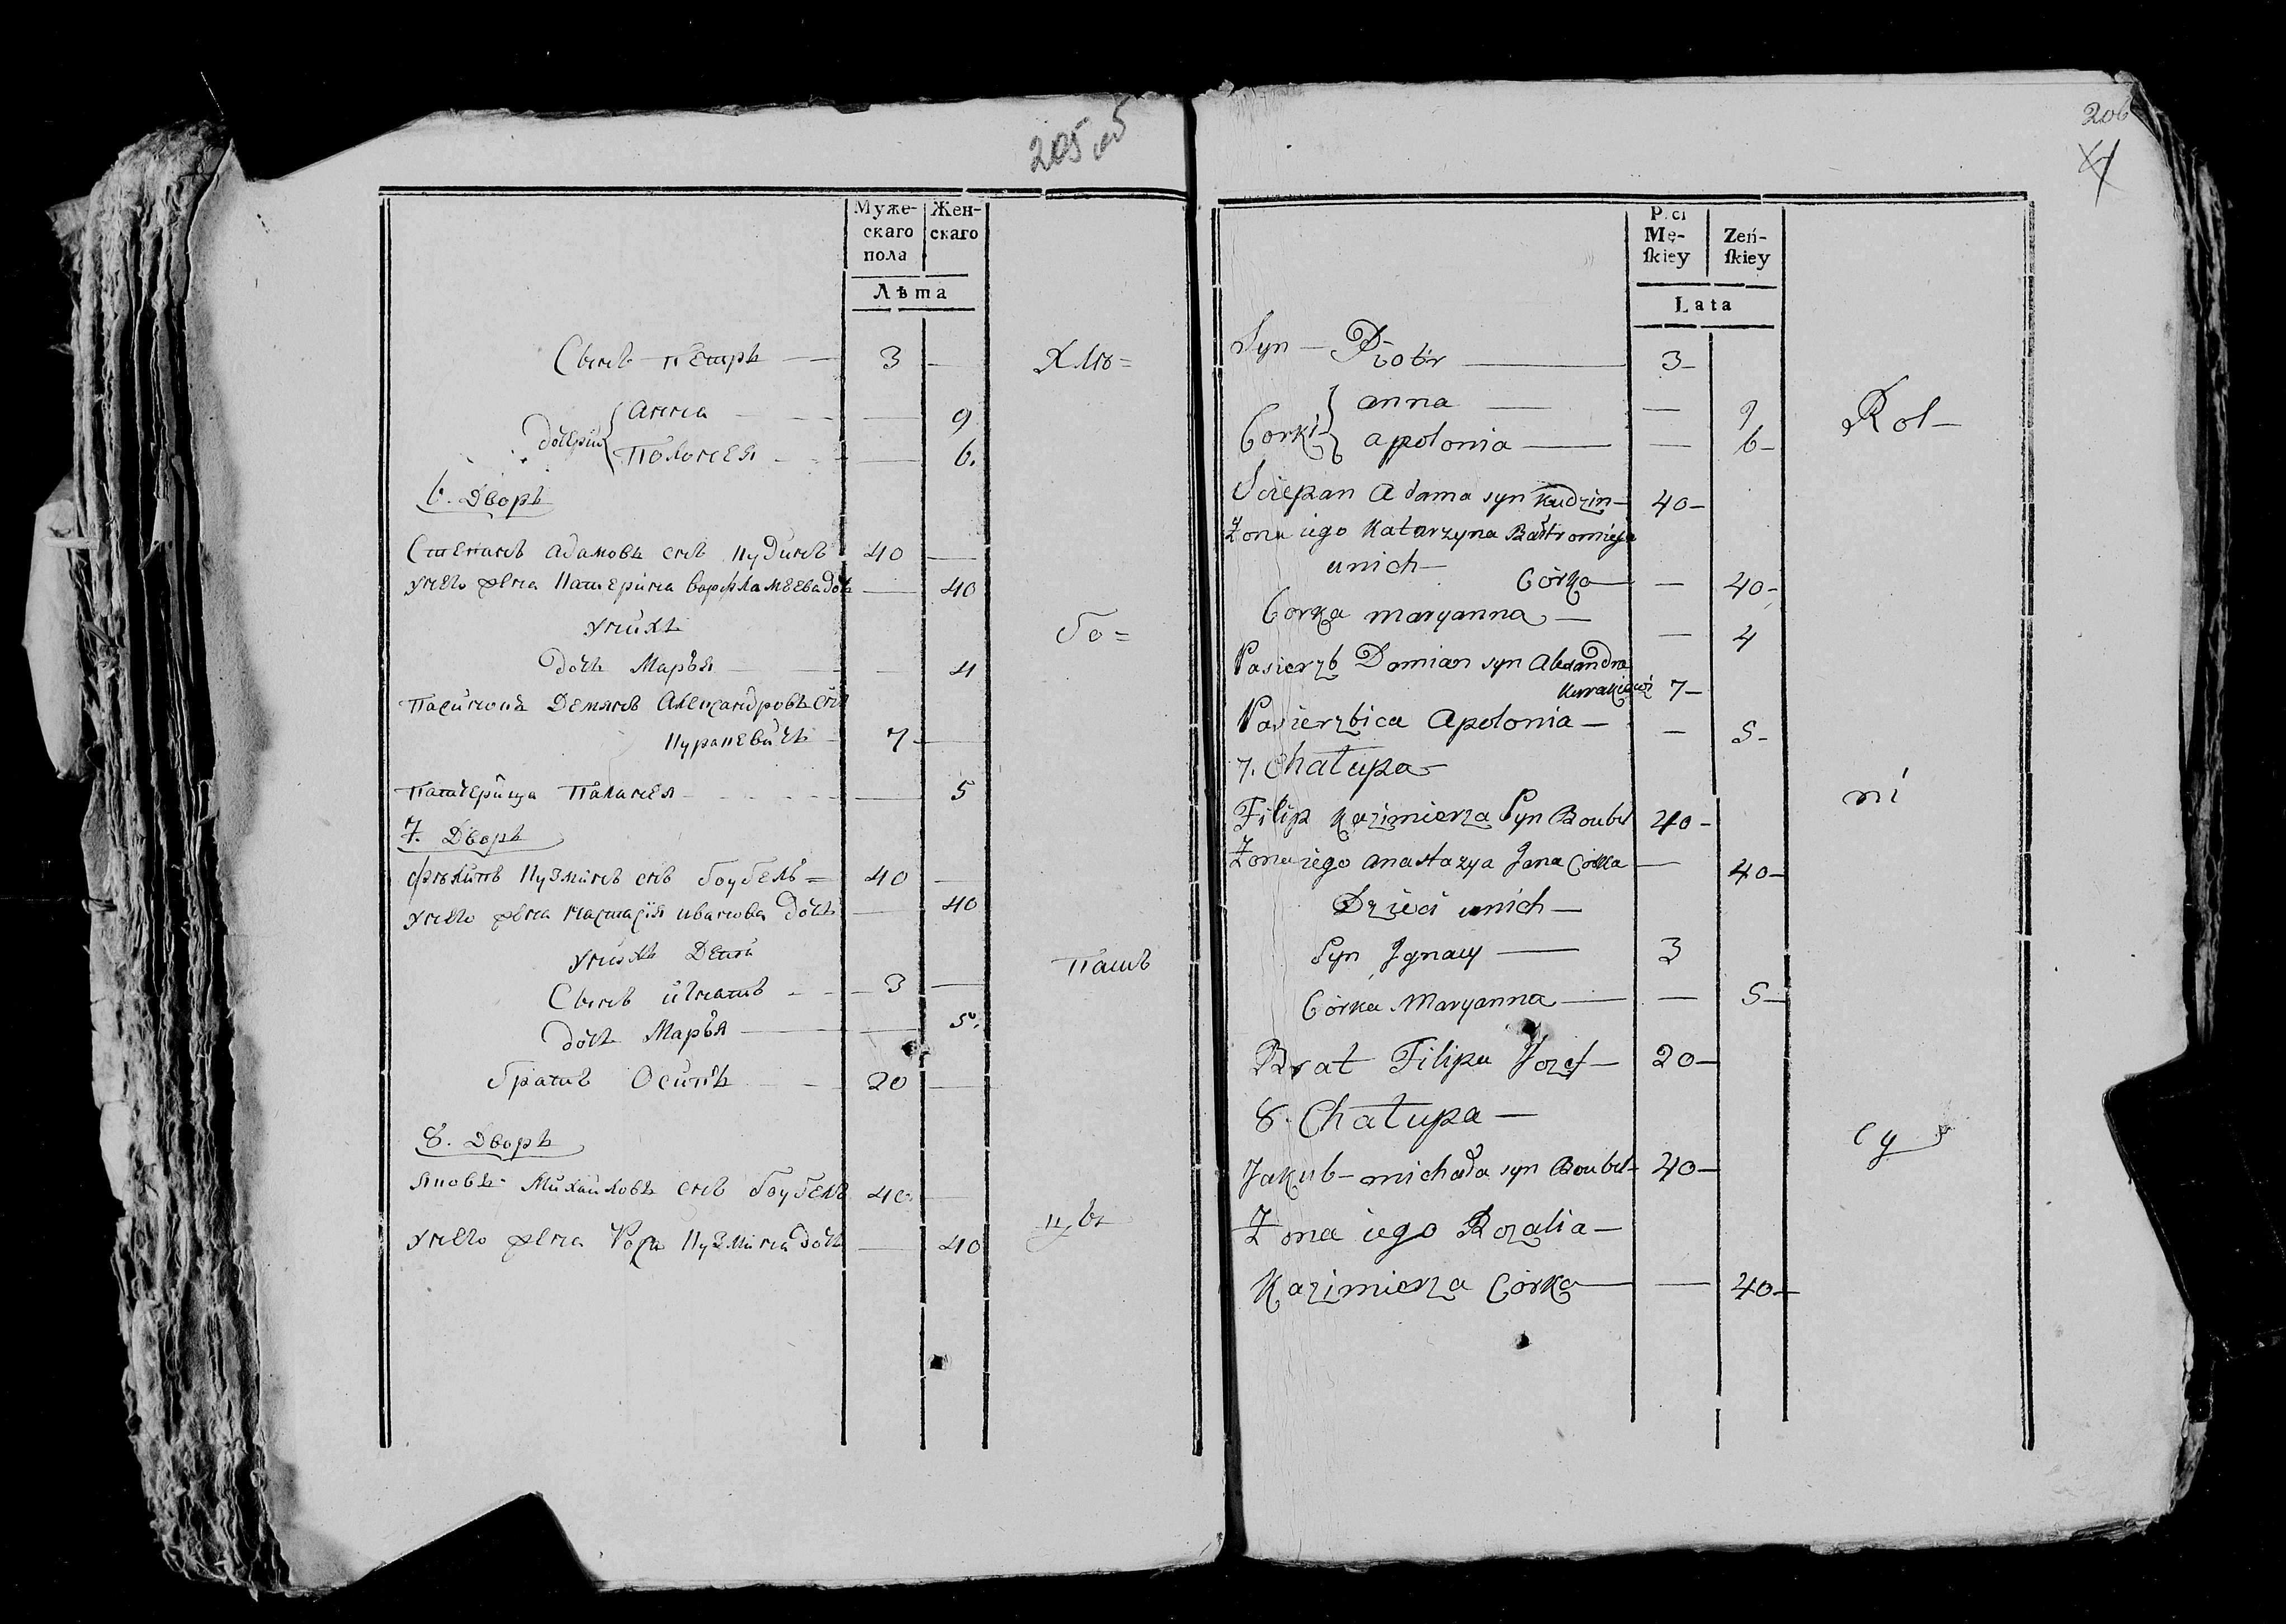 205 об
Муже-
скаго
пола
Жен-
скаго
Лѣта
Сынъ Петръ — 3 —
Хлѣ=
дочери { Анна — — 9
Полонея — — 6.
6. Дворъ
Степанъ Адамовъ снъ Кудинъ 40 —
унего жена Катерина Варфламеева дочь — 40
унихъ
бо=
дочь Марья — — 4
Пасинокъ Демянъ Александровъ снъ
Куракевичъ 7 —
Патчерица Палонея — — 5
7. Дворъ
Филипъ Кузминъ снъ боубель= 40 —
унего жена Настасiя иванова дочь — 40
унихъ Дети
Пашъ
Сынъ игнатъ — 3 —
дочь Марья — — 5.
братъ Осипъ — 20 —
8. Дворъ
Яковъ Михаиловъ снъ боубель 40 —
цы
унего жена Кузмина дочь — 40
206
Płci
Mę-
ſkiey
Zeń-
ſkiey
Lata
Syn — Piotr — 3 —
Corki } anna — — 9
apolonia — — 6 —
Rol —
Sciepan Adama syn Kudzin — 40 —
Zona iego Katarzyna Bałtromieja
unich —
Córka — — 40 —
Corka maryanna — — 4
Pasierzb Damian syn Alexandra
Kurakiewi 7 —
Pasierzbica Apolonia — — 5 —
7. Chałupa —
ni
Filip Kazimierza Syn Boubel 40 —
Zona iego anastazya Jana Córka — 40 —
Dzieci unich —
Syn Ignacy — 3
Córka Maryanna — — 5 —
Brat Filipa Jozef — 20 —
8. Chałupa —
cy
Jakub — michała syn Boubel — 40 —
Zona iego Rozalia —
Kazimierza Córka — — 40 —